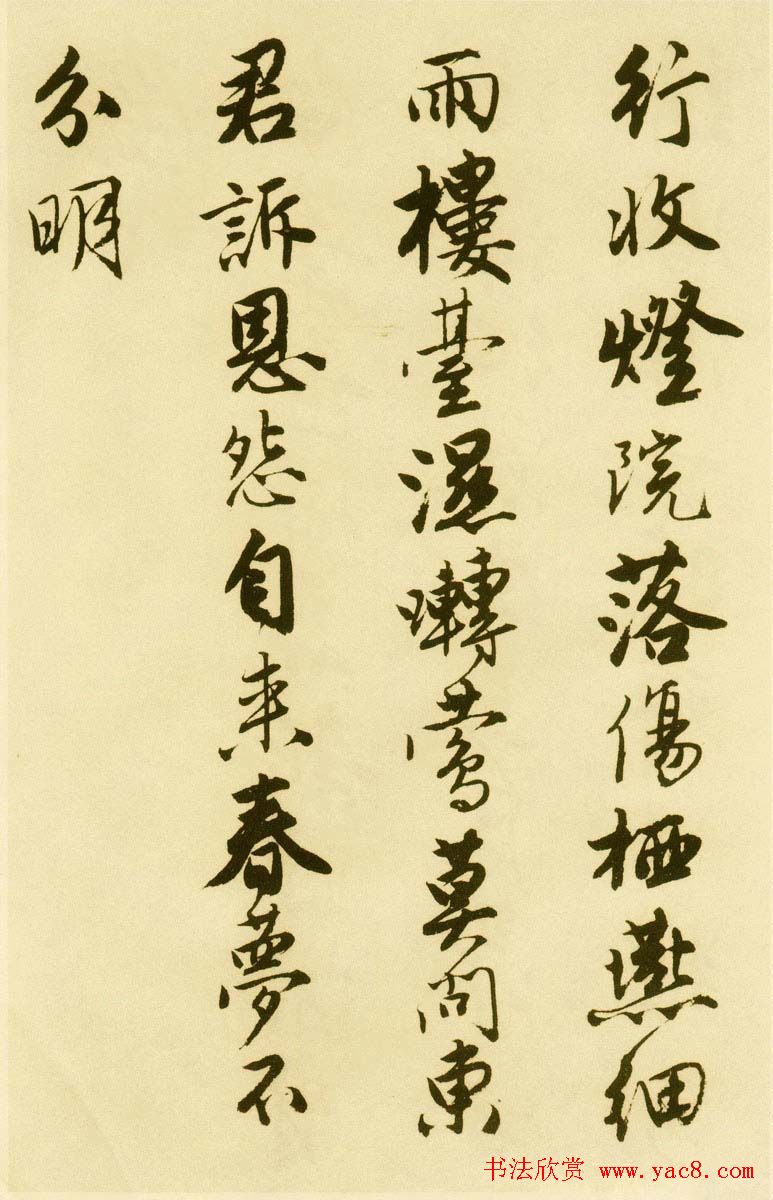 行收燈院落傷栖燕細
雨樓臺濕囀鶯莫問東
君訴恩怨自来春夢不
分明
书法欣赏 www.yac8.com